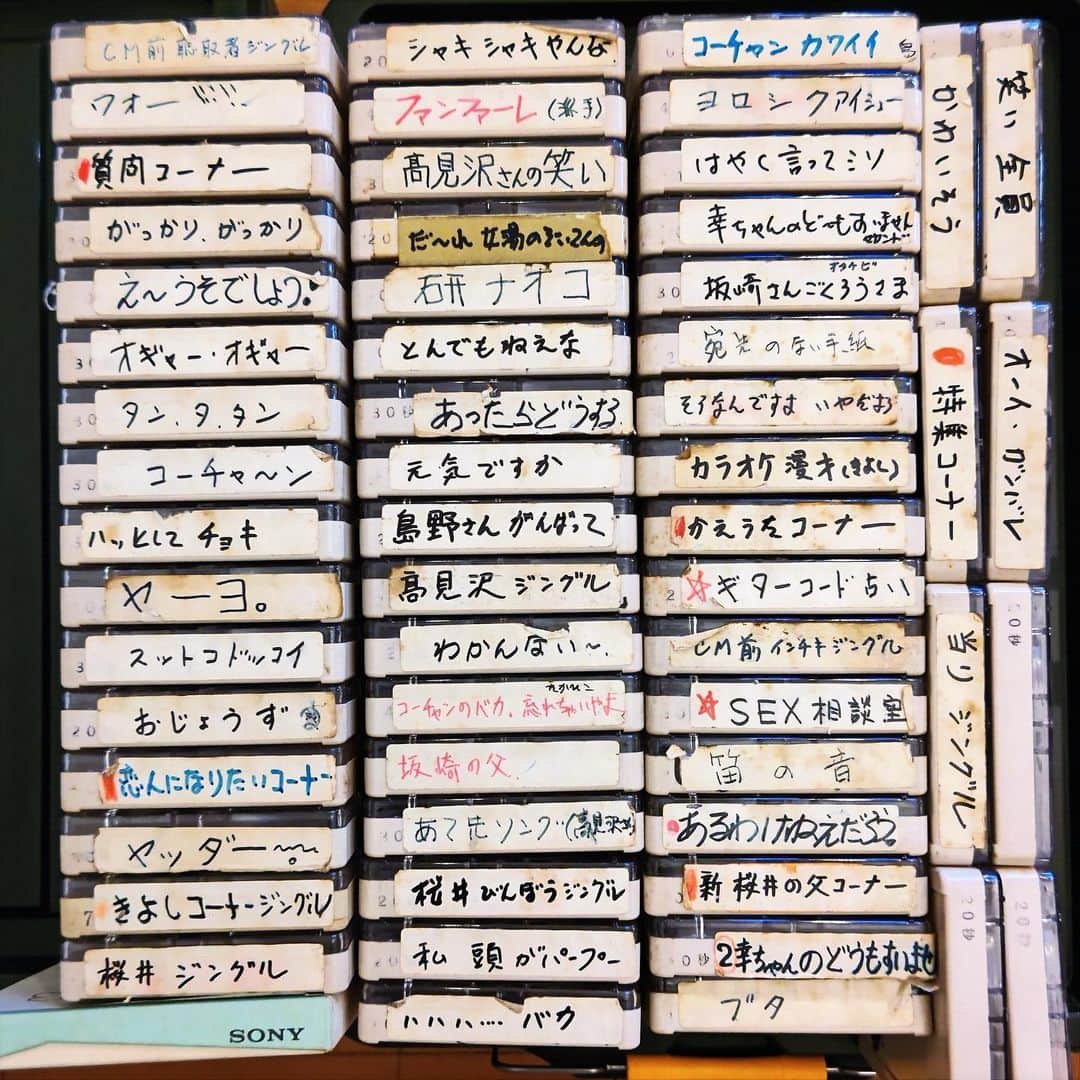 CM前聴取者ジングル
ウオー
質問コーナー
がっかり、がっかり
え〜うそでしょう
30
オギャー・オギャー
30
タン、タ、タン
30
コーチャ〜ン
ハッとして チョキ
ヤーヨ。
スットコドッコイ
20
おじょうず
恋人になりたいコーナー
ヤッダー〜
きよしコーナージングル
桜井 ジングル
SONY
シャキシャキやんな
ファンファーレ (派手)
髙見沢さんの笑い
だ〜れ 女湯の
研ナオコ
とんでもねえな
30秒
あったらどうする
元気ですか
島野さんがんばって
髙見沢ジングル
わかんない〜
コーチャンのバカ、忘れちゃいやよ
坂崎の父
あて先ソング(髙見沢
桜井びんぼうジングル
私 頭がパープー
ハハハ…. バカ
コーチャン カワイイ
ヨロシクアイシュー
はやく言ってミソ
幸ちゃんのど〜もすいません
セカンド
30
坂崎さんごくろうさま
宛先のない手紙
そうなんですよ いやぞお
カラオケ漫才(きよし)
かえうたコーナー
ギターコード占い
CM前インチキジングル
SEX相談室
笛の音
あるわけねえだろ
新 桜井の父コーナー
2幸ちゃんのどうもすいません
ブタ
かわいそう
特集コーナー
当り ジングル
20秒
笑い 全員
オーイ・ガンバレ
20秒
20秒